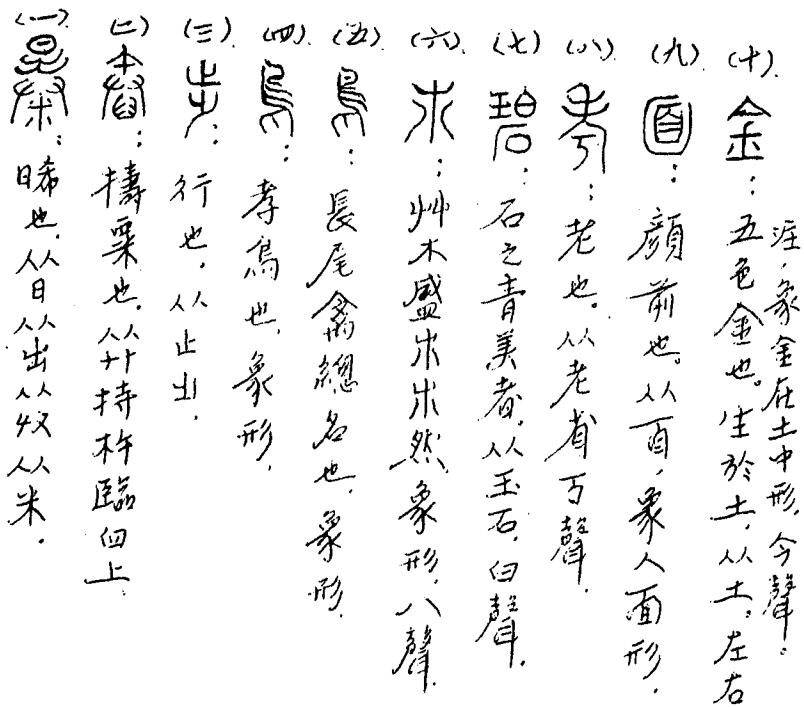 (一).暴:晞也.从日从出从廾从米.
(二)舂:擣粟也.从廾持杵臨臼上.
(三).步:行也.从止𣥂.
(四).烏:孝烏也.象形.
(五).鳥:長尾禽總名也.象形.
(六).朩:艸木盛朩朩然.象形,八聲.
(七)碧:石之青美者.从玉石,白聲.
(八).考:老也。从老省丂聲.
(九).面:顏前也。从𦣻,象人面形.
(十).金:五色金也。生於土,从土。左右
注,象金在土中形.今聲: